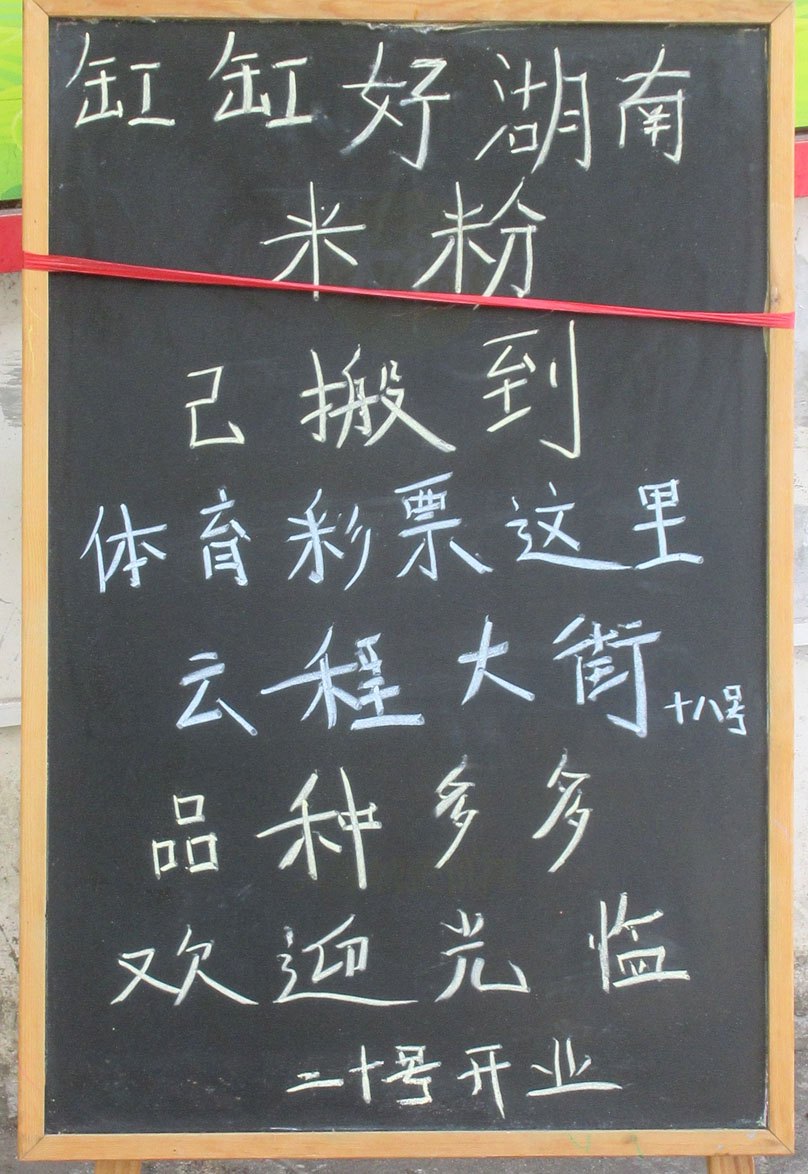 缸缸好湖南
米粉
己搬到
体育彩票这里
云程大街十八号
品种多多
欢迎光临
二十号开业